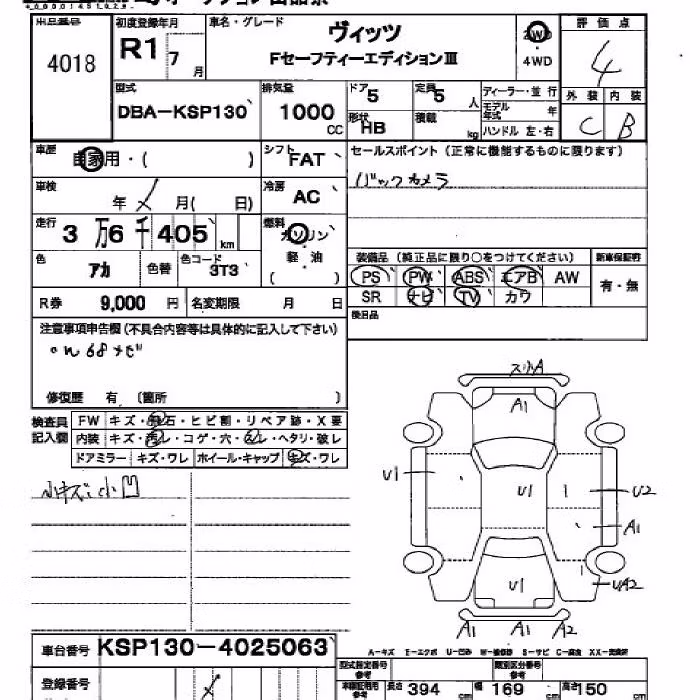 4018
初度登録年月
R1 7 月
車名・グレード
ヴィッツ
Fセーフティーエディション Ⅲ
2WD
・
4WD
評価点
4
外装 内装
C B
型式
DBA-KSP130
排気量
1000 CC
ドア 5
定員 5 人
ディーラー・並行
モデル年式 年
ハンドル 左・右
形状 HB
積載 kg
車歴
自家用・( )
シフト FAT
セールスポイント(正常に機能するものに限ります)
バックカメラ
車検
年 月( 日)
冷房 AC
走行
3 万 6 千 405 km
燃料
ガソリン
軽・油
( )
色 アカ
色替
色コード 3T3
装備品(純正品に限り○をつけてください)
新車保証書
PS PW ABS エアB AW
有・無
SR ナビ TV カワ
R券 9,000 円
名変期限 月 日
後日品
注意事項申告欄(不具合内容等は具体的に記入して下さい)
修復歴 有 (箇所 )
検査員
記入欄
FW キズ・飛石・ヒビ割・リペア跡・X要
内装 キズ・汚レ・コゲ・穴・スレ・ヘタリ・破レ
ドアミラー キズ・ワレ ホイール・キャップ キズ・ワレ
小キズ小凹
スリA
A1
U1
U1
U2
A1
U1
UA2
A1 A1 A2
車台番号 KSP130-4025063
A-キズ E-エクボ U-凹み W-補修跡 S-サビ C-腐食 XX-交換済
型式指定番号
類別区分番号
登録番号
車検証利用参考
長さ 394 cm
幅 参考 169 cm
高さ 参考 150 cm